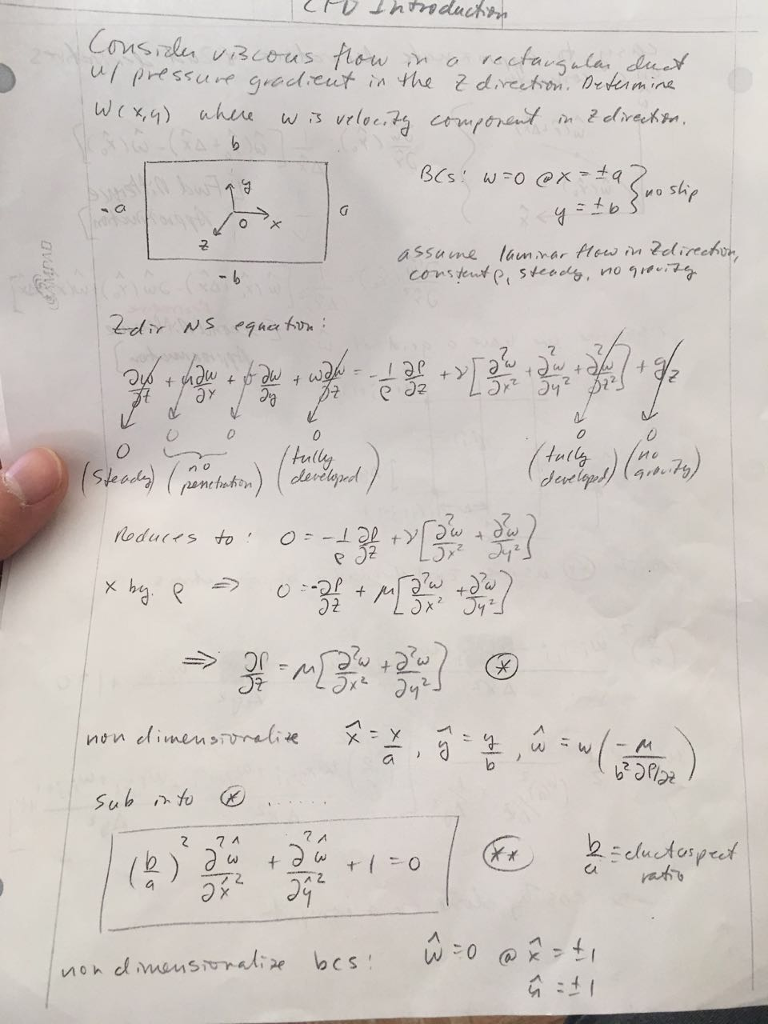 CFD Introduction
Consider viscous flow in a rectangular duct
w/ pressure gradient in the z direction. Determine
w(x,y) where w is velocity component in z direction.
b
-a
y
x
z
0
a
-b
BCs: w=0 @x = ±a
y = ±b } no slip
assume laminar flow in z direction,
constant ρ, steady, no gravity
Z dir NS equation:
∂w/∂t + u ∂w/∂x + v ∂w/∂y + w ∂w/∂z = -1/ρ ∂P/∂z + ν[∂²w/∂x² + ∂²w/∂y² + ∂²w/∂z²] + g_z
0 0 0 0 0 0
(steady) (no penetration) (fully developed) (fully developed) (no gravity)
Reduces to: 0 = -1/ρ ∂P/∂z + ν[∂²w/∂x² + ∂²w/∂y²]
x by ρ ⇒ 0 = -∂P/∂z + μ[∂²w/∂x² + ∂²w/∂y²]
⇒ ∂P/∂z = μ[∂²w/∂x² + ∂²w/∂y²] (*)
non dimensionalize x̂ = x/a, ŷ = y/b, ŵ = w(-μ/(b² ∂P/∂z))
sub into (*) ......
(b/a)² ∂²ŵ/∂x̂² + ∂²ŵ/∂ŷ² + 1 = 0 (**) b/a ≡ duct aspect
ratio
non dimensionalize bcs: ŵ=0 @ x̂ = ±1
ŷ = ±1